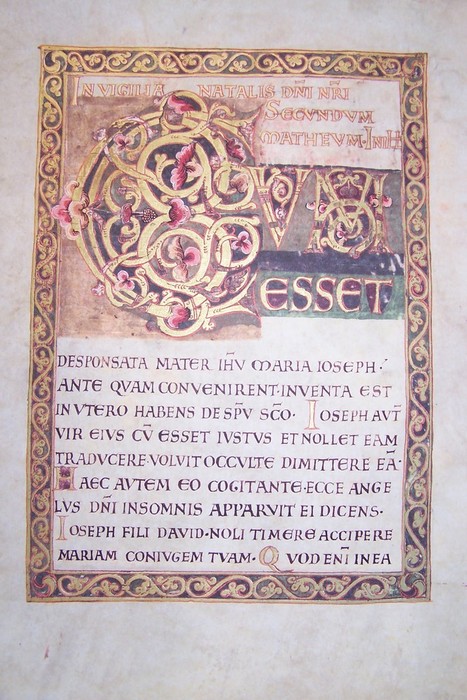 IN VIGILIA NATALIS DNI NRI
SECUNDUM
MATHEVM. IN ILL
CVM
ESSET
DESPONSATA MATER IHV MARIA IOSEPH·
ANTE QVAM CONVENIRENT·INVENTA EST
IN VTERO HABENS DE SPV SCO· IOSEPH AVT
VIR EIVS CV ESSET IVSTVS ET NOLLET EAM
TRADVCERE·VOLVIT OCCVLTE DIMITTERE EA·
HAEC AVTEM EO COGITANTE·ECCE ANGE
LVS DNI IN SOMNIS APPARVIT EI DICENS·
IOSEPH FILI DAVID·NOLI TIMERE ACCIPERE
MARIAM CONIVGEM TVAM· QVOD ENI IN EA